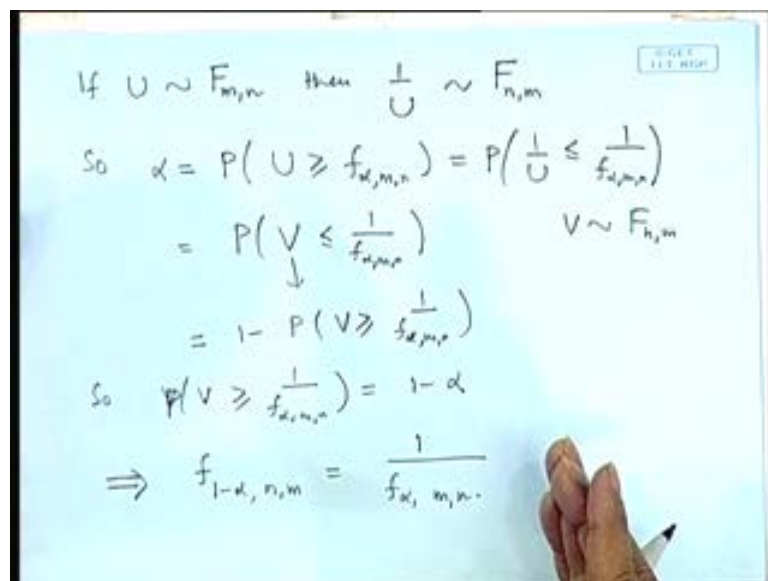 If U ~ F_{m,n} then 1/U ~ F_{n,m}
So α = P( U ≥ f_{α,m,n} ) = P( 1/U ≤ 1/f_{α,m,n} )
= P( V ≤ 1/f_{α,m,n} ) V ~ F_{n,m}
↓
= 1 - P( V ≥ 1/f_{α,m,n} )
So P( V ≥ 1/f_{α,m,n} ) = 1 - α
⇒ f_{1-α, n,m} = 1/f_{α, m,n}.